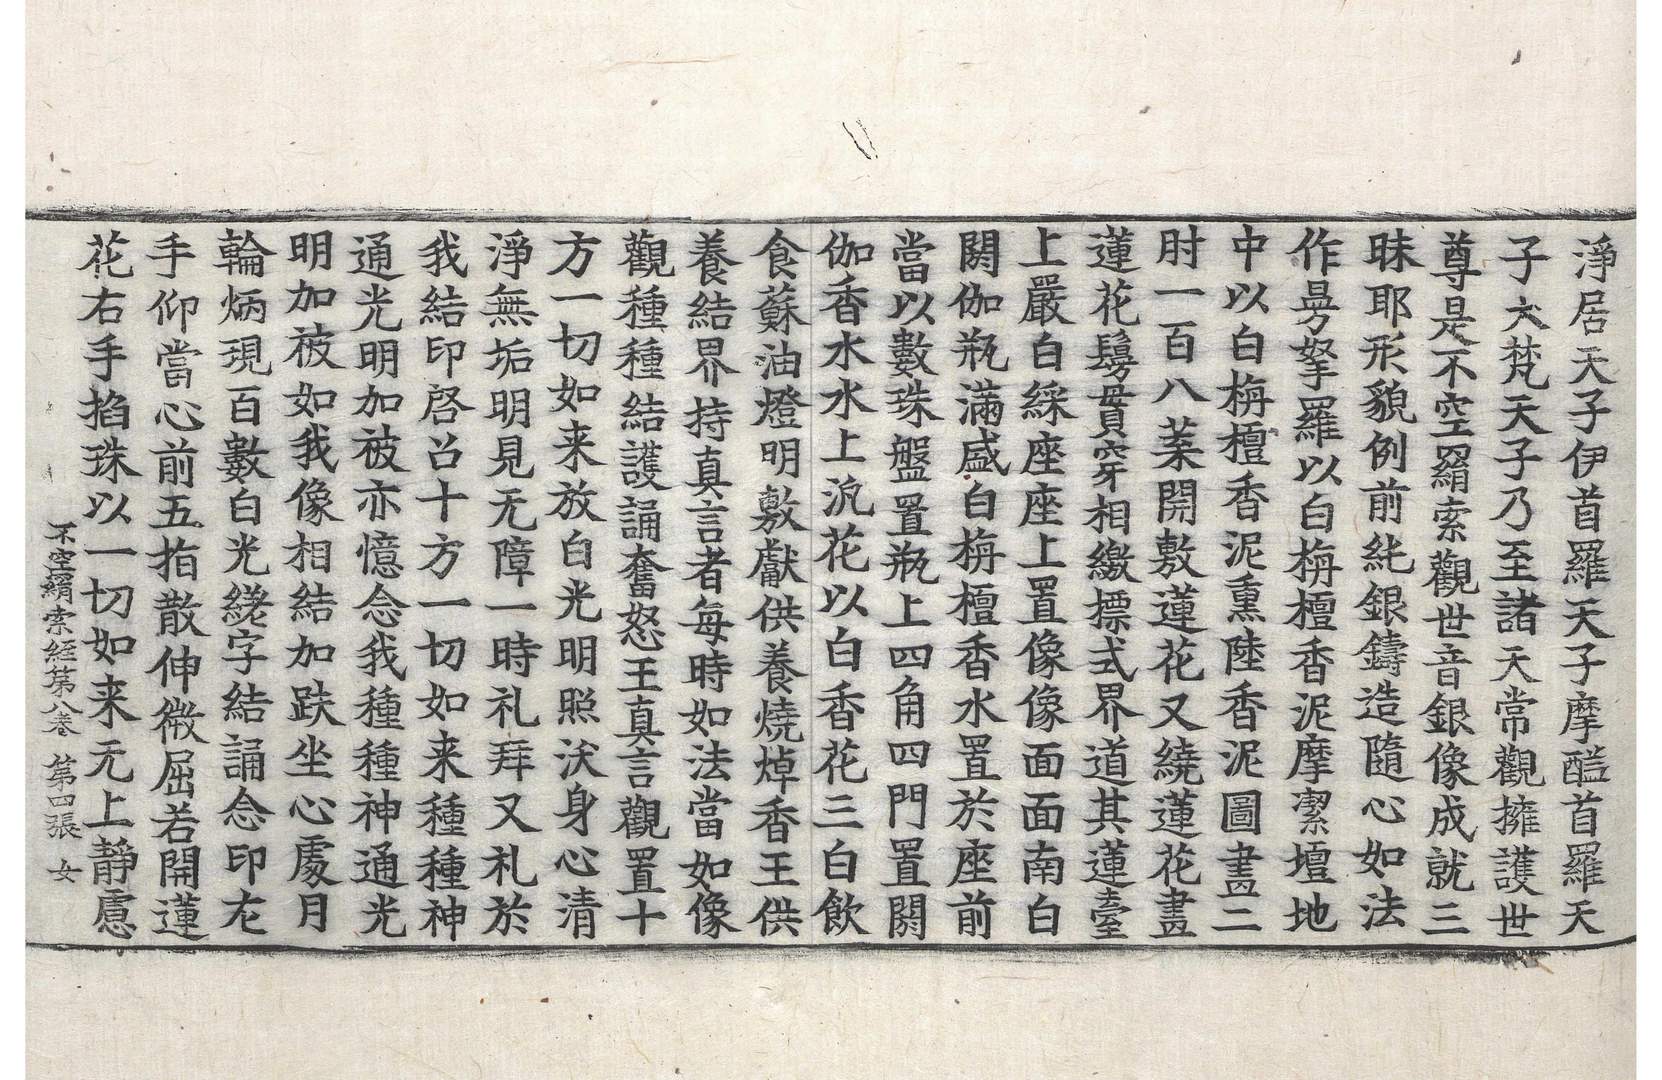 淨居天子伊首羅天子摩醯首羅天
子大梵天子乃至諸天常觀擁護世
尊是不空羂索觀世音銀像成就三
昧耶形貌例前純銀鑄造隨心如法
作曼拏羅以白栴檀香泥摩潔壇地
中以白栴檀香泥熏陸香泥圖畫二
肘一百八葉開敷蓮花又繞蓮花畫
蓮花鬘貫穿相繳摽式界道其蓮臺
上嚴白綵座座上置像像面面南白
閼伽瓶滿盛白栴檀香水置於座前
當以數珠盤置瓶上四角四門置閼
伽香水水上汎花以白香花三白飲
食蘇油燈明敷獻供養燒焯香王供
養結界持真言者每時如法當如像
觀種種結護誦奮怒王真言觀置十
方一切如来放白光明照沃身心清
淨無垢明見无障一時礼拜又礼於
我結印啓召十方一切如来種種神
通光明加被亦憶念我種種神通光
明加被如我像相結加趺坐心處月
輪炳現百數白光繞字結誦念印左
手仰當心前五拍散伸微屈若開蓮
花右手掐珠以一切如来无上靜慮
不空羂索経第八卷 第四張 女